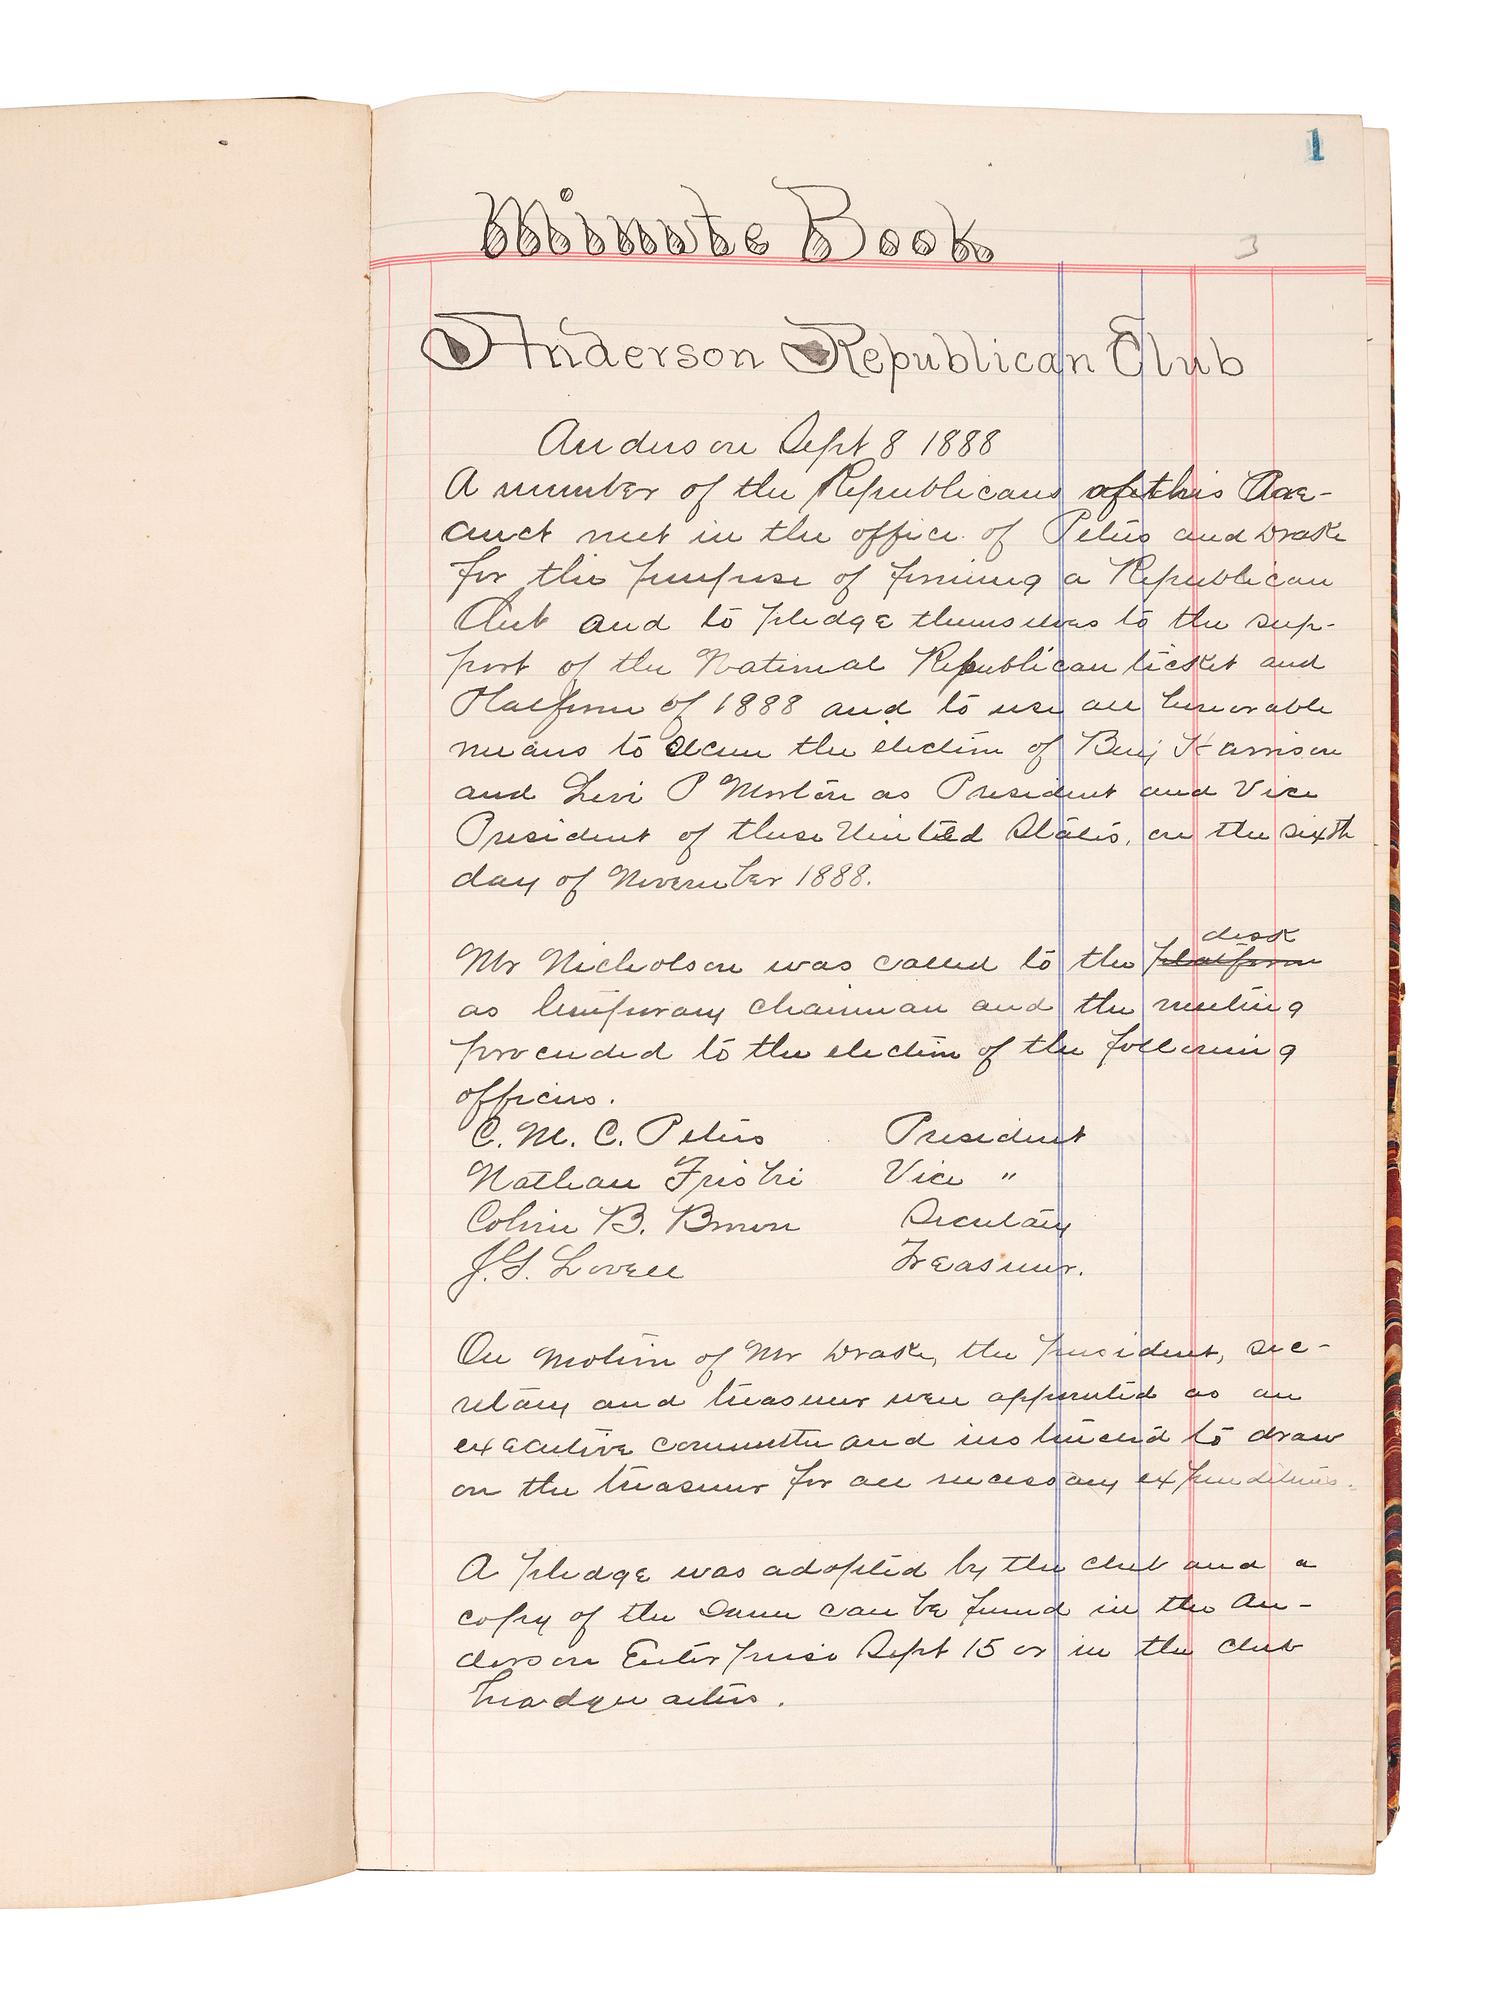 1
Minute Book
3
Anderson Republican Club
Anderson Sept 8 1888
A number of the Republicans of this
met in the office of Peters and Drake
for the purpose of forming a Republican
Club and to pledge themselves to the sup-
port of the National Republican ticket and
Platform of 1888 and to use all honorable
means to secure the election of Benj Harrison
and Levi P Morton as President and Vice
President of these United States, on the sixth
day of November 1888.
desk
Mr Nicholson was called to the platform
as temporary chairman and the meeting
proceeded to the election of the following
officers.
C. M. C. Peters President
Nathan Frisbie Vice "
Colvin B. Brown Secretary
J. G. Lovell Treasurer.
On motion of Mr Drake, the president, sec-
retary and treasurer were appointed as an
executive committee and instructed to draw
on the treasurer for all necessary expenditures.
A pledge was adopted by the club and a
copy of the same can be found in the An-
derson Enterprise Sept 15 or in the club
headquarters.